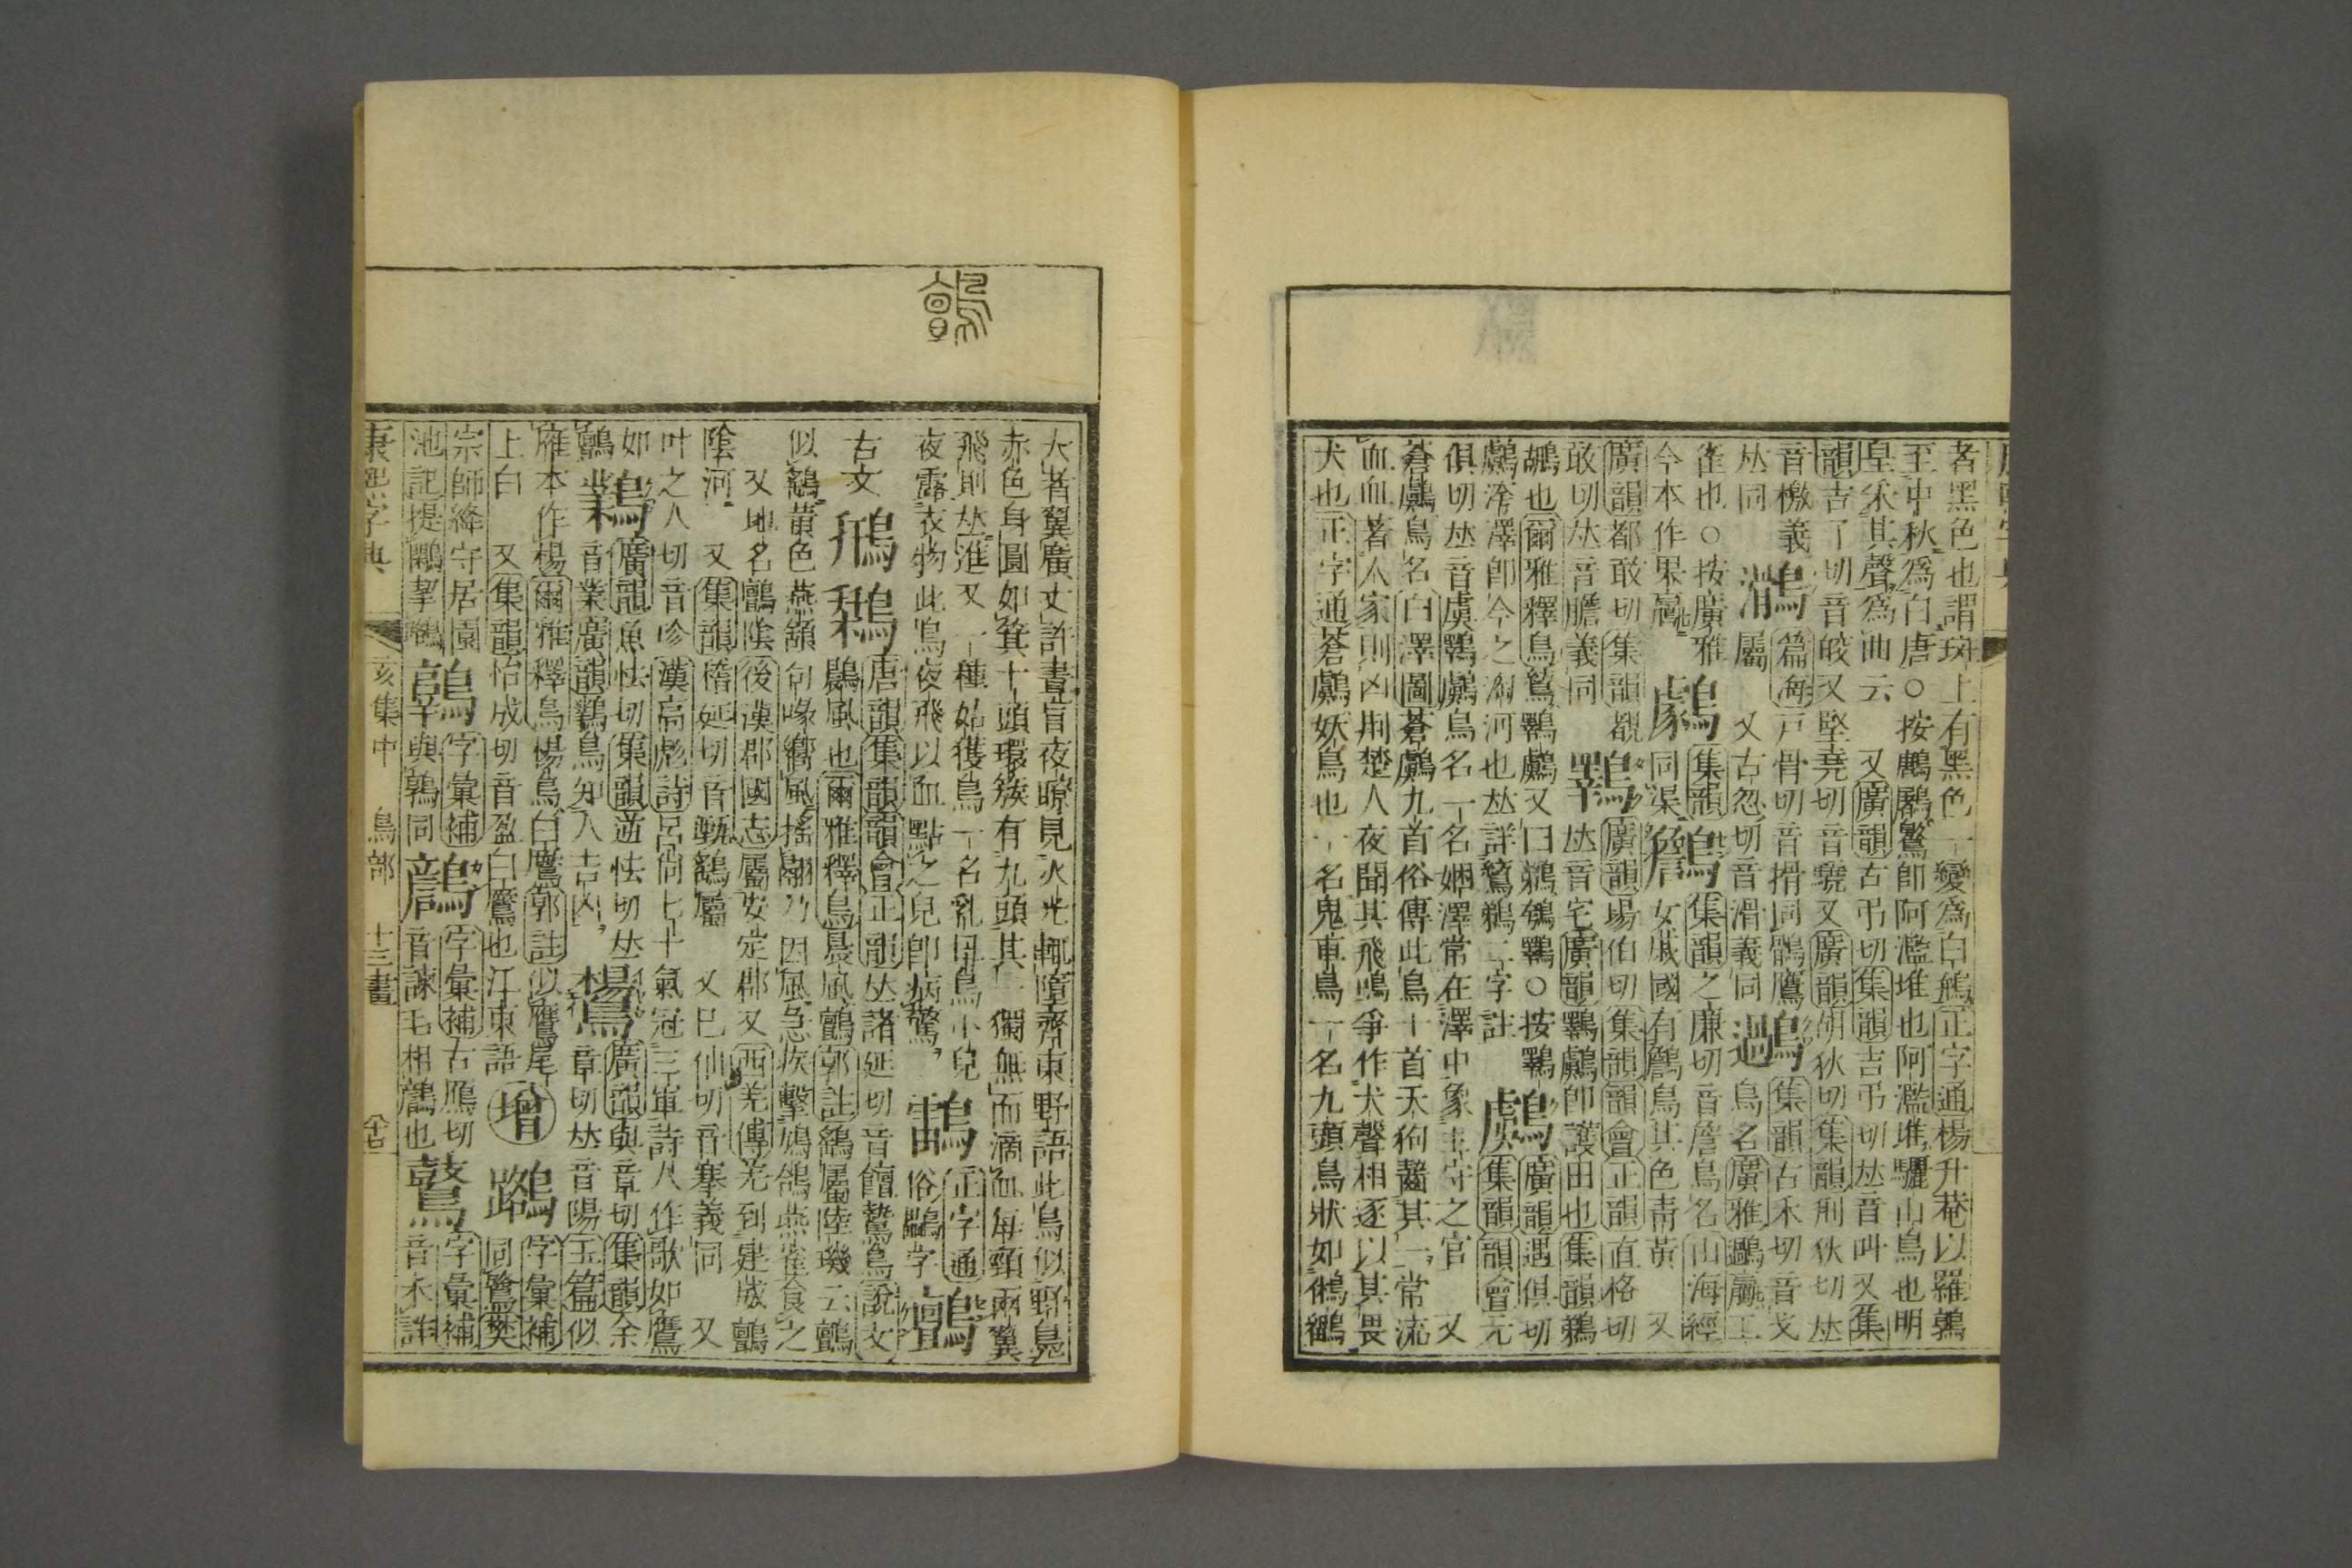 者黑色也謂斑上有黑色一變爲白鴘正字通楊升菴以羅鶉
至中秋爲白唐○按鷓鶌鷩卽阿濫堆也阿濫堆驪山鳥也明
皇采其聲爲曲云 又廣韻古弔切集韻吉弔切𠀤音叫又集
韻吉了切音皎又堅堯切音驍又廣韻胡狄切集韻刑狄切𠀤
音檄義
𠀤同 䳷 篇海戸骨切音搰同鶻鷹
屬 又古忽切音滑義同 𪃸 集韻古禾切音戈
鳥名廣雅鷗鸁工
雀也○按廣雅
今本作果鸁 𪆂 集韻
同渠 𪆻 集韻之廉切音詹鳥名山海經
女烕國有𪆻鳥其色靑黃 又
廣韻都敢切集韻覩
敢切𠀤音膽義同 鸅 廣韻場伯切集韻韻會正韻直格切
𠀤音宅廣韻鸅鸆卽護田也集韻鵜
鶘也爾雅釋鳥鴽鸅鸆又曰鵜鴮鸅○按鸅
鸆洿澤卽今之淘河也𠀤詳鴽鵜二字註 鸆 廣韻遇俱切
集韻韻會元
俱切𠀤音虞鸅鸆鳥名一名婟澤常在澤中象主守之官 又
蒼鸆鳥名白澤圖蒼鸆九首俗傳此鳥十首天狗齧其一常流
血血著人家則凶荆楚人夜聞其飛鳴爭作犬聲相逐以其畏
犬也正字通蒼鸆妖鳥也一名鬼車鳥一名九頭鳥狀如鵂鶹
大者翼廣丈許晝盲夜瞭見火光輒墮齊東野語此鳥似野鳧
赤色身圓如箕十頭環簇有九頭其一獨無而滴血每頸兩翼
飛則𠀤進又一種姑獲鳥一名乳母鳥小兒
夜露衣物此鳥夜飛以血點之兒卽病驚 䨼 正字通
俗鷉字 鸇
古文 𪀶 𪂉 唐韻集韻韻會正韻𠀤諸延切音饘鷙鳥說文
鷐風也爾雅釋鳥晨風鸇郭註鷂屬陸璣云鸇
似鷂黃色燕頷句喙嚮風搖翮乃因風急疾擊鳩鴿燕雀食之
又地名鸇陰後漢郡國志屬安定郡又西羌傳羌到建威鸇
陰河 又集韻稽延切音甄鷂屬 又巳仙切音搴義同 又
叶之人切音㐱漢高彪詩呂尚七十氣冠三軍詩人作歌如鷹
如
鸇 鸈 廣韻魚怯切集韻逆怯切𠀤
音業廣韻鸈鳥知人吉凶 鸉 廣韻與章切集韻余
章切𠀤音陽玉篇似
雁本作楊爾雅釋鳥楊鳥白鷹郭註似鷹尾
上白 又集韻怡成切音盈白鷹也江東語 增 䴌 字彙補
同鷺樊
宗師絳守居園
池記提𪆏挈鷺 𪇆 字彙補
與鶉同 𪆫 字彙補古鴈切
音諫毛相𪆫也 𪆳 字彙補
音未詳
康熙字典 亥集中 鳥部 十三畫